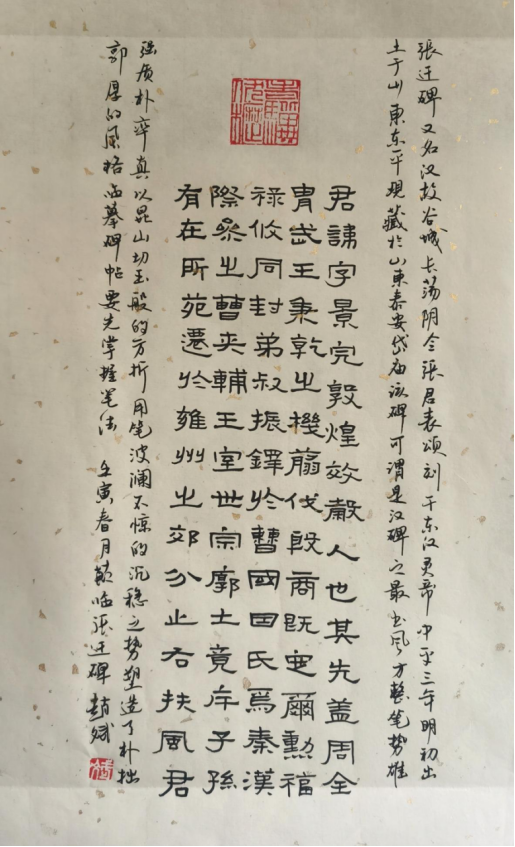 張迁碑又名汉故谷城长荡阴令張君表頌刻于东汉灵帝中平三年明初出
土于山東东平现藏於山東泰安岱庙该碑可谓是汉碑之最书风方整笔势雄
君諱字景完敦煌效糓人也其先盖周全
胄武王秉乾之機翦伐殷商既定爾勲福
禄攸同封弟叔振鐸於曹國田氏焉秦漢
際之曹夾輔王室世宗廓土竟子孫
有在所苑遷於雍州之郊分止右扶風君
强质朴率真以昆山切玉般的方折用笔波澜不惊的沉稳之势塑造了朴拙
郭厚的風格临摹碑帖要先掌握笔法 壬寅春月临張迁碑 赵斌